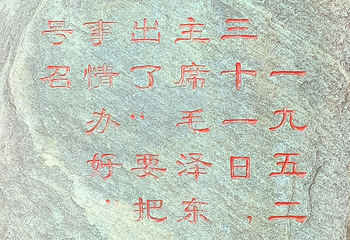 一九五二
三十一日，
主席毛泽东
出了“要把
事情办好”
号召